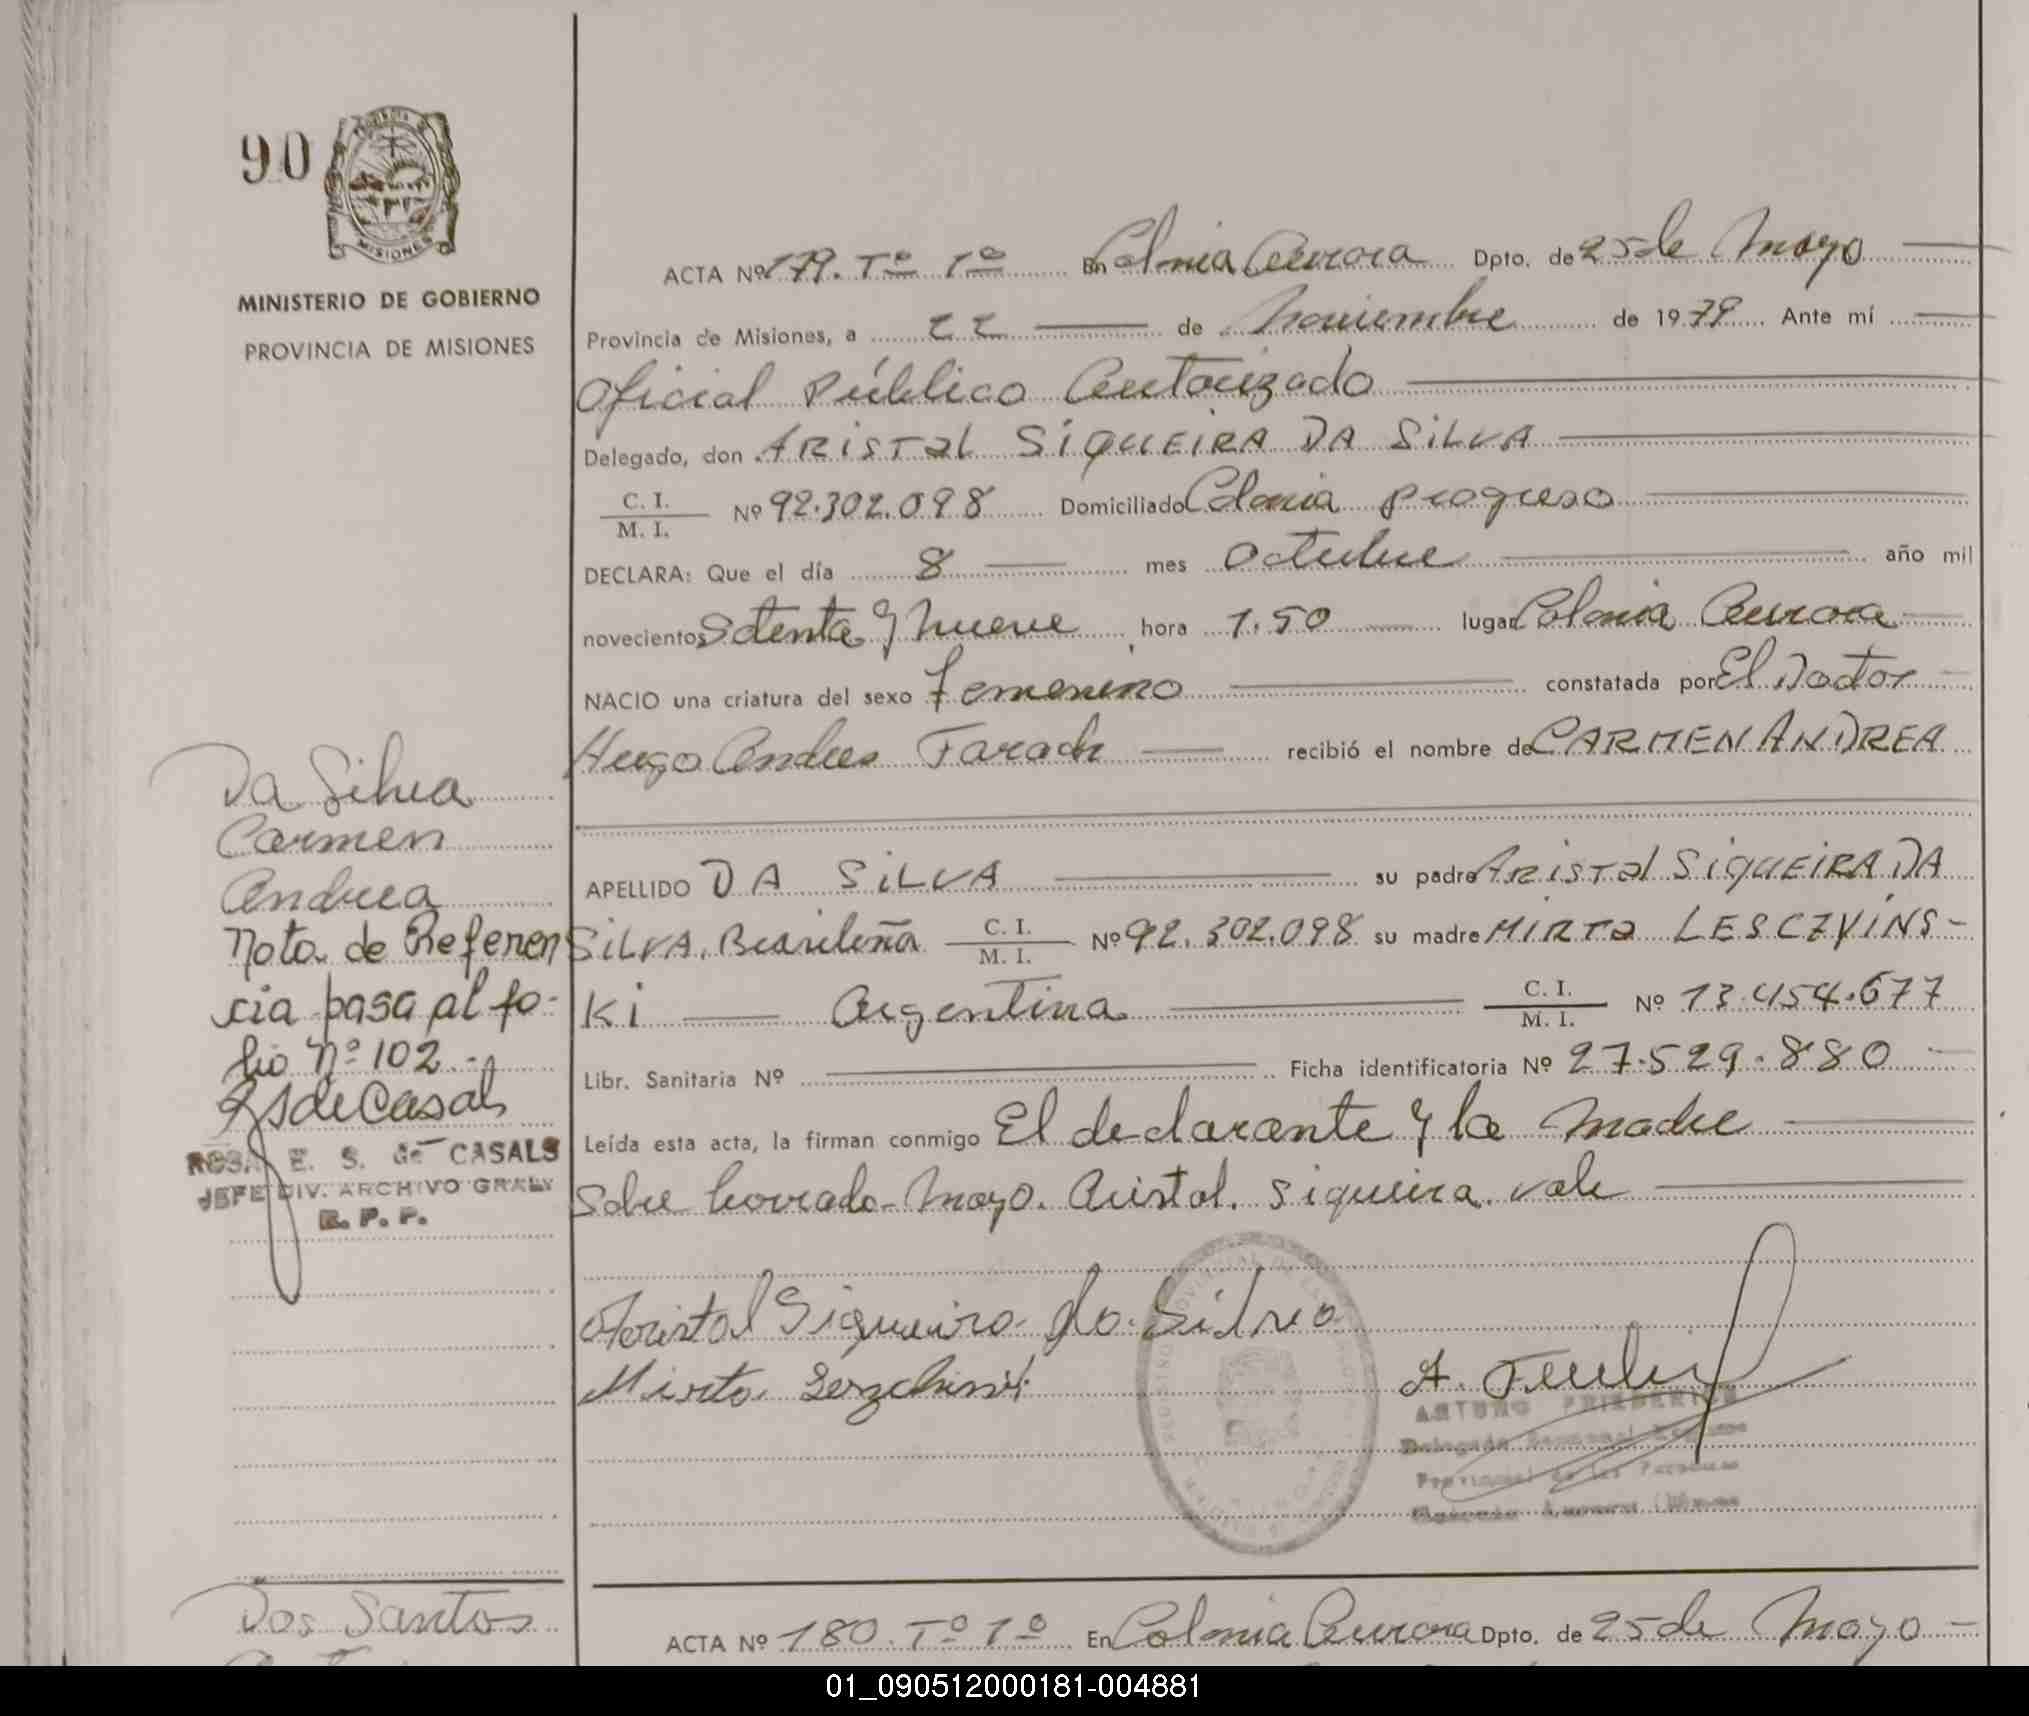 90
PROVINCIA DE
MISIONES
MINISTERIO DE GOBIERNO
PROVINCIA DE MISIONES
ACTA Nº 179. Tº 1º En Colonia Aurora Dpto. de 25 de Mayo
Provincia de Misiones, a 22 de Noviembre de 1979 Ante mí
Oficial Público Autorizado
Delegado, don ARISTal SiQUEIRA DA SiLVA
C. I. / M. I. Nº 92.302.098 Domiciliado Colonia progreso
DECLARA: Que el día 8 mes octubre año mil
novecientos Setenta y nueve, hora 1.50 lugar Colonia Aurora
NACIO una criatura del sexo femenino constatada por El Doctor
Hugo Andres Farach recibió el nombre de CARMEN ANDREA
APELLIDO DA SiLVA su padre ARiSTal SiQUEiRA DA
SiLVA. Brasileña C. I. / M. I. Nº 92.302.098 su madre MIRTa LESCZVINS-
Ki Argentina C. I. / M. I. Nº 13.454.677
Libr. Sanitaria Nº Ficha identificatoria Nº 27.529.880
Leída esta acta, la firman conmigo El declarante y la Madre
Sobre borrado- Mayo. Aristal. Siqueira. vale
Aristal Siqueira da Silva
Mirta
A.
ARTURO FRIEDERICH
Delegado Seccional Registro
Provincial de las Personas
Colonia Aurora
Da Silva
Carmen
Andrea
Nota de Referen
cia pasa al fo-
lio Nº 102.-
RSdeCasals
ROSA E. S. de CASALS
JEFE DIV. ARCHIVO GRAL.
R. P. P.
Dos Santos
ACTA Nº 180. Tº 1º En Colonia Aurora Dpto. de 25 de Mayo
01_090512000181-004881